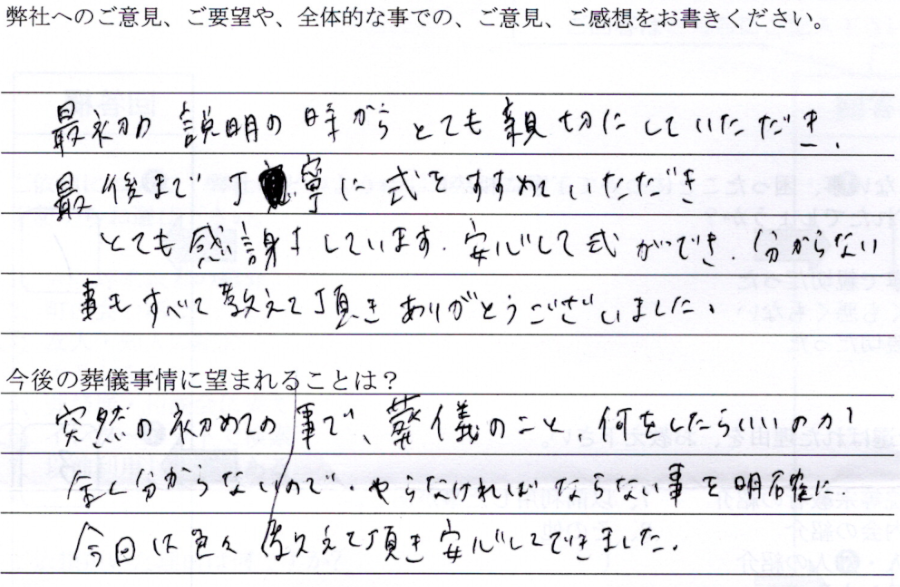 弊社へのご意見、ご要望や、全体的な事での、ご意見、ご感想をお書きください。
最初の説明の時からとても親切にしていただき、
最後まで丁寧に式をすすめていただき
とても感謝しています。安心して式ができ、分からない
事もすべて教えて頂きありがとうございました。
今後の葬儀事情に望まれることは？
突然の初めての事で、葬儀のこと、何をしたらいいのか
全く分からないので、やらなければならない事を明確に
今回は色々教えて頂き安心してできました。